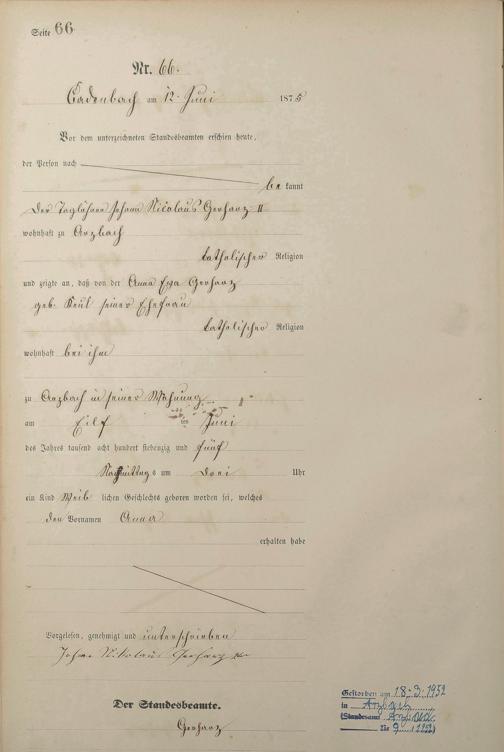 Seite 66
Nr. 66.
Cadenbach am 12. Juni 1875
Vor dem unterzeichneten Standesbeamten erschien heute,
der Person nach
be kannt
der Taglöhner Johann Nicolaus Gerharz II
wohnhaft zu Arzbach
katholischer Religion
und zeigte an, daß von der Anna Eva Gerharz
geb. seiner Ehefrau
katholischer Religion
wohnhaft bei ihm
zu Arzbach in seiner Wohnung
am Eilf ten Juni
des Jahres tausend acht hundert siebenzig und fünf
Nachmittags um Drei Uhr
ein Kind Weib lichen Geschlechts geboren worden sei, welches
den Vornamen Anna
erhalten habe
Vorgelesen, genehmigt und unterschrieben
Johann Nikolaus Gerharz
Der Standesbeamte.
Gerharz
Gestorben am 18.3.1952
in Arzbach
(Standesamt Arzbach
Nr 9 1952)